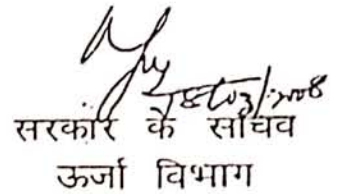 18/03/2008
सरकार के सचिव
ऊर्जा विभाग